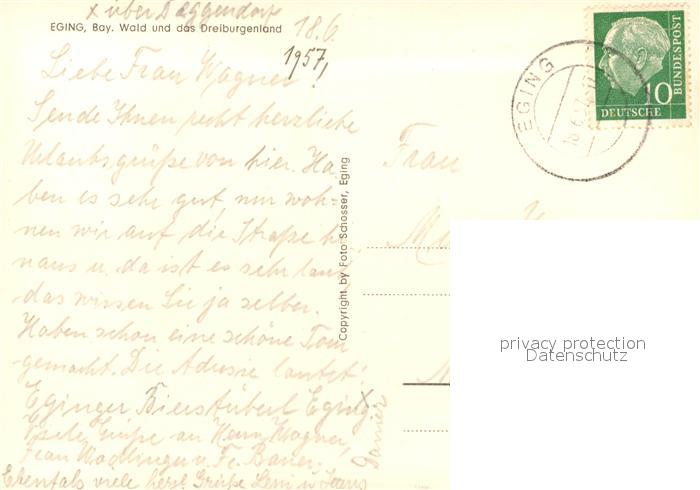 x über Deggendorf
EGING, Bay. Wald und das Dreiburgenland
18.6.
1957,
Liebe Frau Wagner!
Sende Ihnen recht herzliche
Urlaubsgrüße von hier. Ha-
ben es sehr gut, nur woh-
nen wir auf die Straße hi-
naus u. da ist es sehr laut
das wissen Sie ja selber.
Haben schon eine schöne Tour
gemacht. Die Adresse lautet:
Eginger Bierstüberl Eging x
Viele Grüße an Herrn Wagner,
Frau u. Fr. Bauer,
Ebenfals viele herzl. Grüße Leni u.
Copyright by Foto Schosser, Eging
Frau
EGING
10
DEUTSCHE
BUNDESPOST
privacy protection
Datenschutz